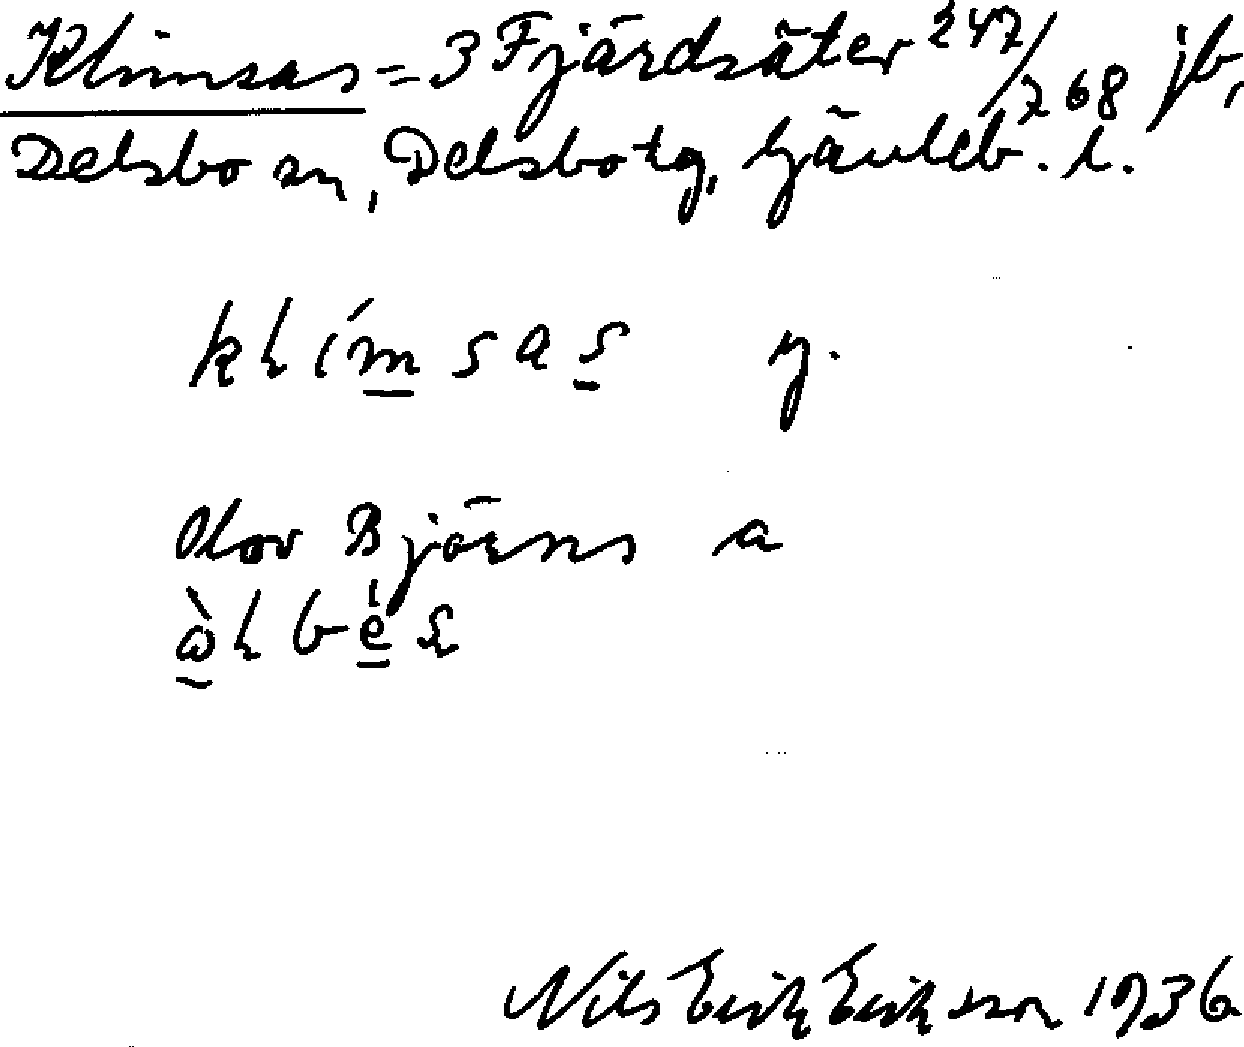 Klimsas = 3 Fjärdsäter 247/768 jb,
Delsbo sn, Delsbo tg, Gävleb. l.
klímsas y.
Olov Björns a
Nils Erik Eriksson 1936